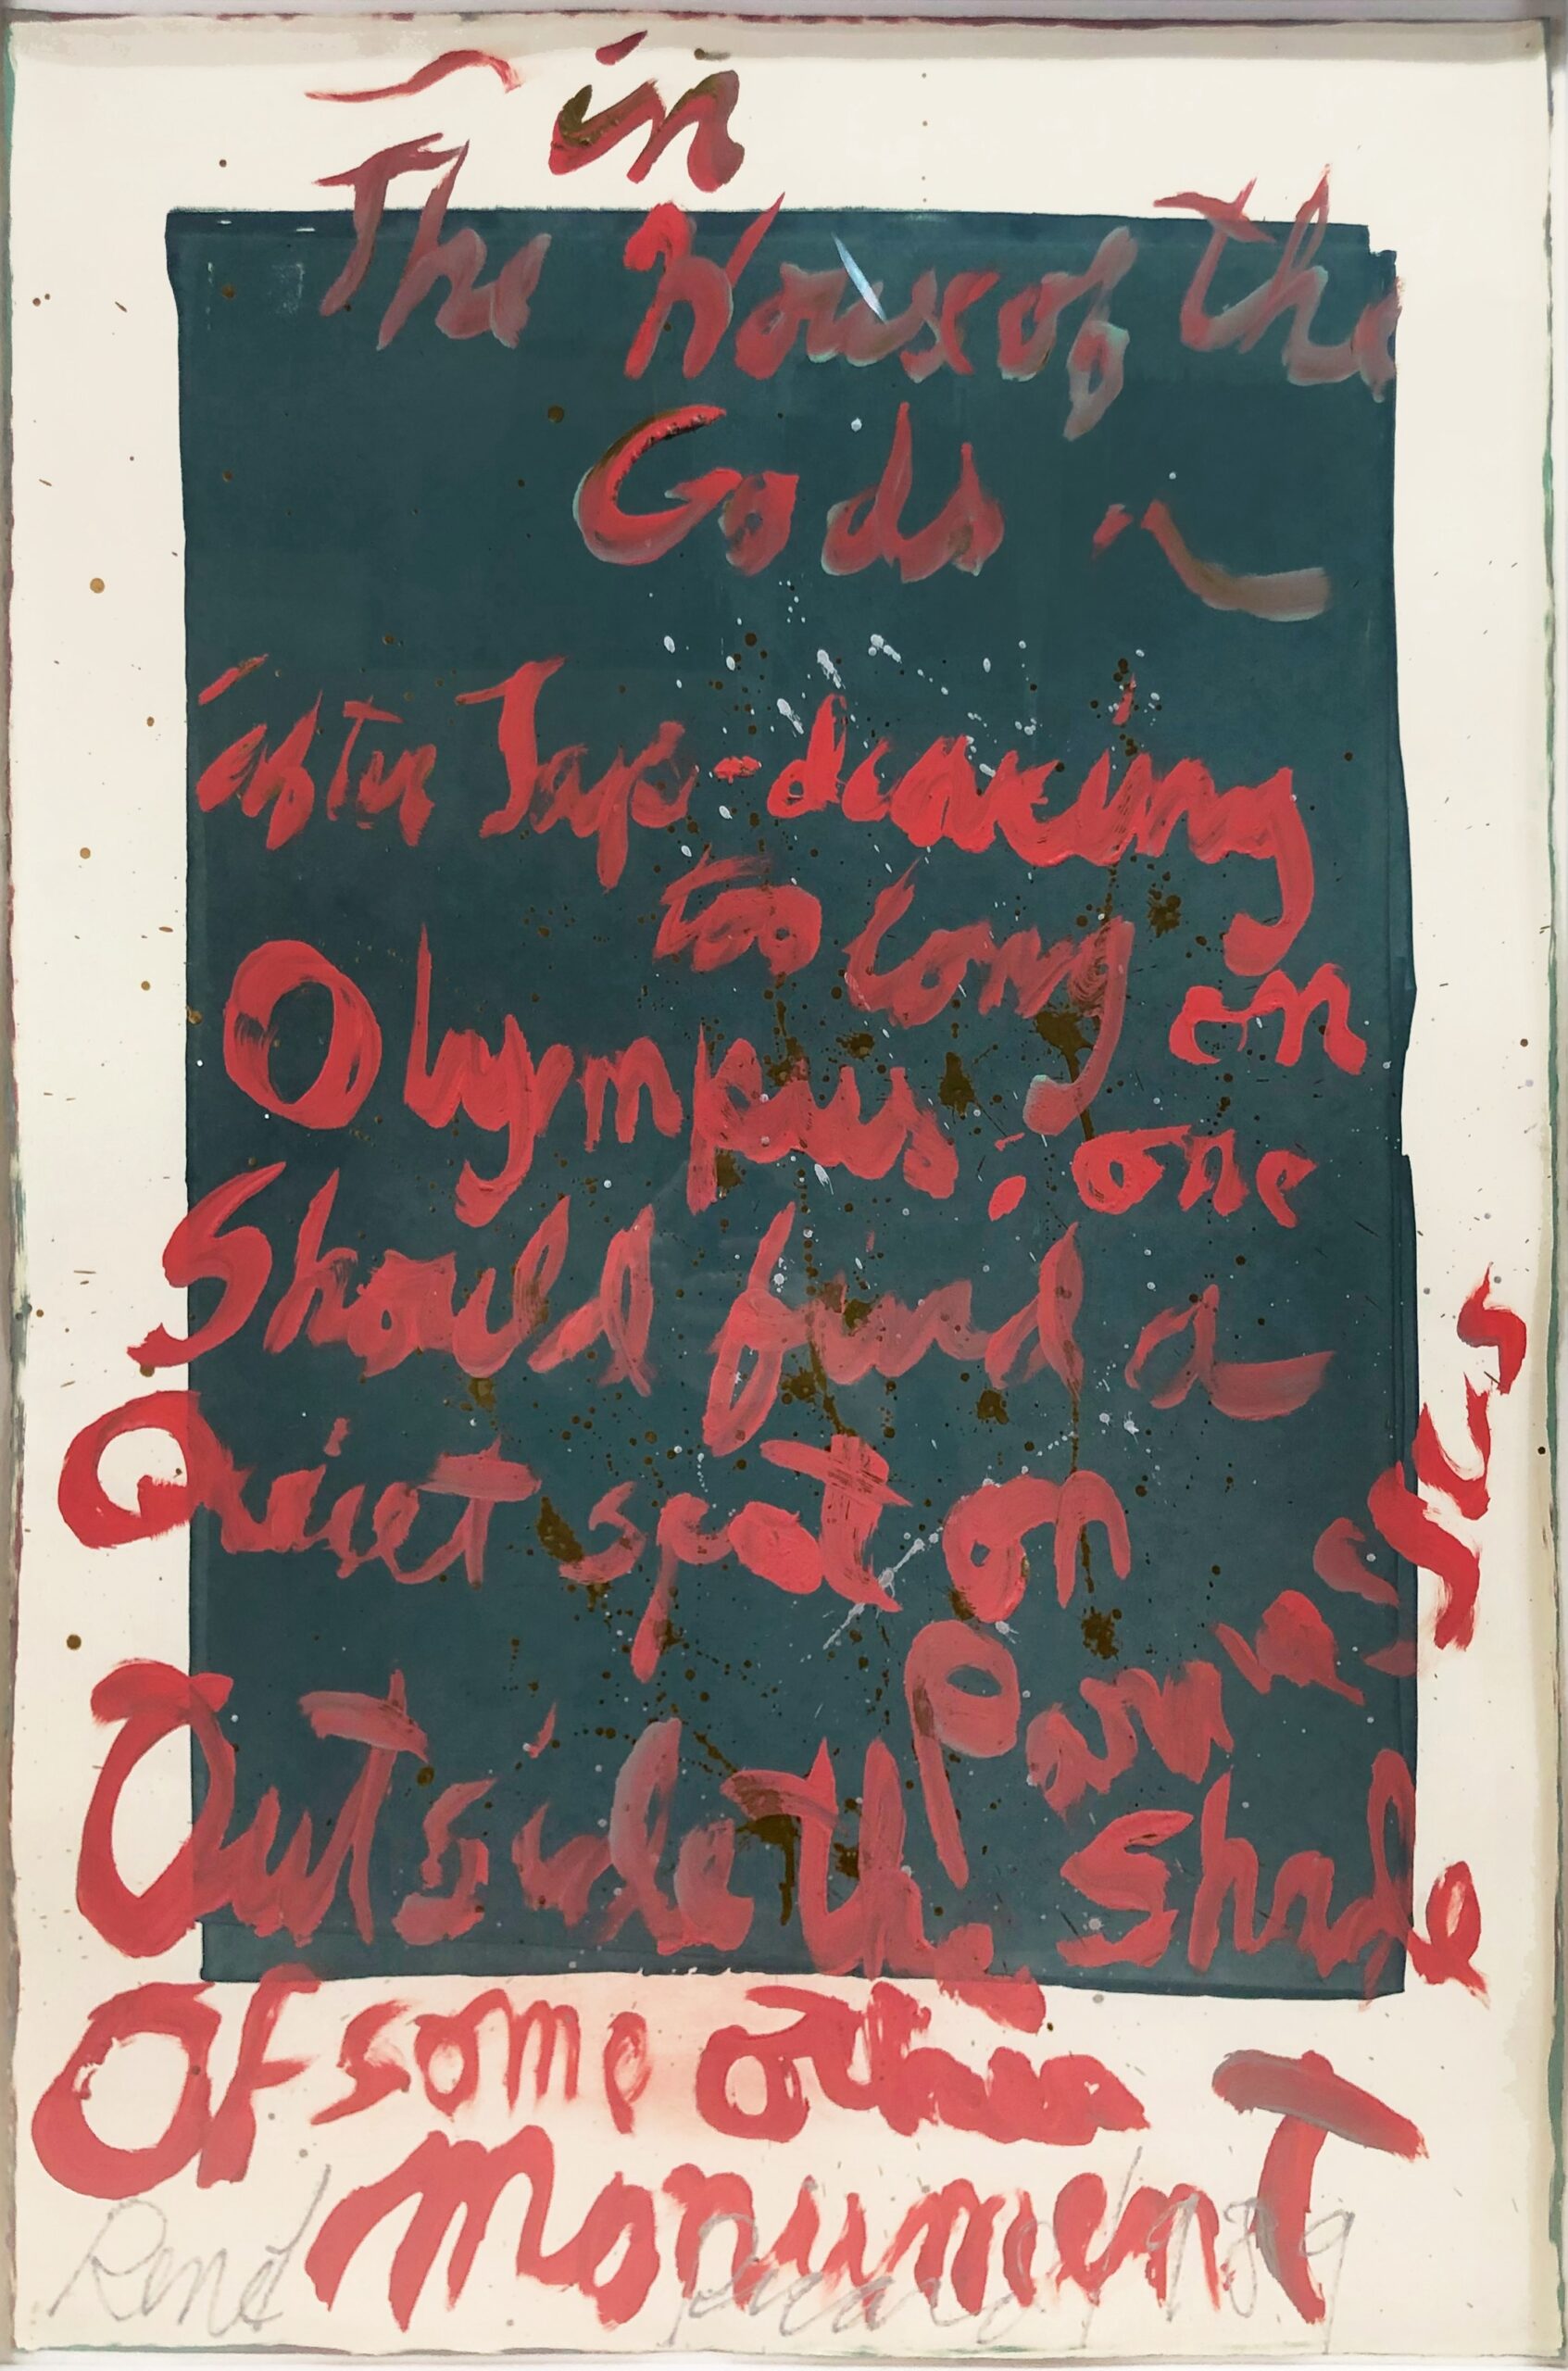 in
The House of the
Gods ~
after Tap-dancing
too long on
Olympus; one
Should find a
Quiet spot on
Parnassus
Outside the Shade
Of some other
monument
René Ricard 1989